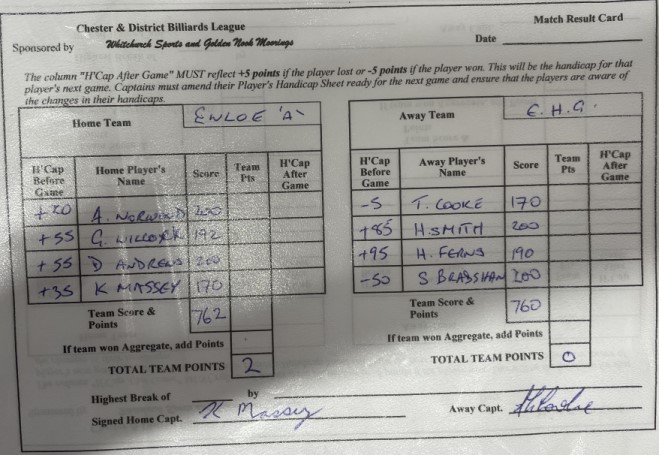 Chester & District Billiards League
Match Result Card
Sponsored by Whitchurch Sports and Golden Nook Moorings
Date
The column "H'Cap After Game" MUST reflect +5 points if the player lost or -5 points if the player won. This will be the handicap for that
player's next game. Captains must amend their Player's Handicap Sheet ready for the next game and ensure that the players are aware of
the changes in their handicaps.
Home Team ENLOE 'A'
H'Cap Before Game Home Player's Name Score Team Pts H'Cap After Game
+20 A. NORWOOD 200
+55 G. WILCOCK 192
+55 D ANDREWS 200
+35 K MASSEY 170
Team Score & Points 762
If team won Aggregate, add Points
TOTAL TEAM POINTS 2
Away Team E.H.G.
H'Cap Before Game Away Player's Name Score Team Pts H'Cap After Game
-5 T. COOKE 170
+85 H.SMITH 200
+95 H. FERNS 190
-50 S BRADSHAW 200
Team Score & Points 760
If team won Aggregate, add Points
TOTAL TEAM POINTS 0
Highest Break of by
Signed Home Capt. K Massey
Away Capt.